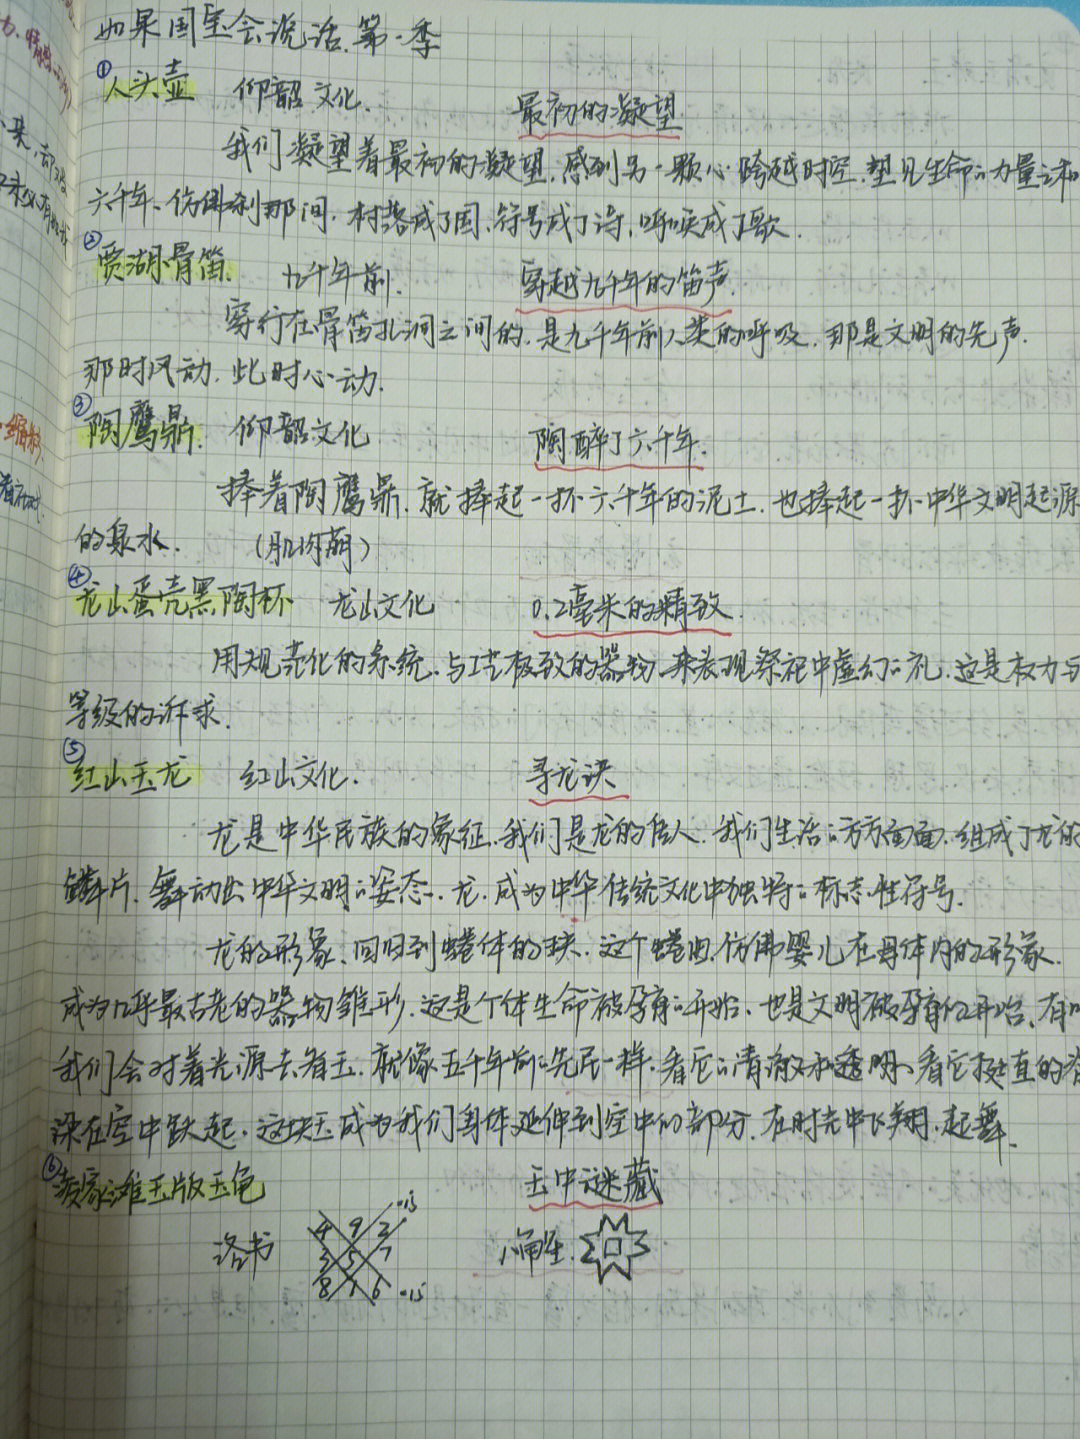 如果国宝会说话.第一季
①人头壶 仰韶文化. 最初的凝望
我们凝望着最初的凝望,感到另一颗心跨越时空,望见生命的力量之和
六千年,仿佛刹那间,村落成了国,符号成了诗,呼唤成了歌.
②贾湖骨笛. 九千年前. 穿越九千年的笛声.
穿行在骨笛孔洞之间的,是九千年前人类的呼吸,那是文明的先声.
那时风动,此时心动.
③陶鹰鼎. 仰韶文化 陶醉了六千年.
捧着陶鹰鼎,就捧起一抔六千年的泥土,也捧起一抔中华文明起源
的泉水. (肌肉萌)
④龙山蛋壳黑陶杯 龙山文化 0.2毫米的精致.
用规范化的系统,与工艺极致的器物,来表现祭祀中虚幻的礼,这是权力与
等级的诉求.
⑤红山玉龙 红山文化. 寻龙诀
龙是中华民族的象征,我们是龙的传人,我们生活的方方面面,组成了龙的
鳞片,舞动出中华文明的姿态.龙,成为中华传统文化中独特的标志性符号.
龙的形象,回归到蜷体的玦,这个蜷曲,仿佛婴儿在母体内的形象.
成为几乎最古老的器物雏形,这是个体生命被孕育的开始,也是文明被孕育的开始,有时
我们会对着光源去看玉,就像五千年前的先民一样,看它的清澈和透明,看它挺直的脊
梁在空中跃起,这块玉成为我们身体延伸到空中的部分,在时光中飞翔,起舞.
⑥凌家滩玉版玉龟 玉中谜藏
洛书 4 9 2 =15 八角星.
3 5 7
8 1 6 =15